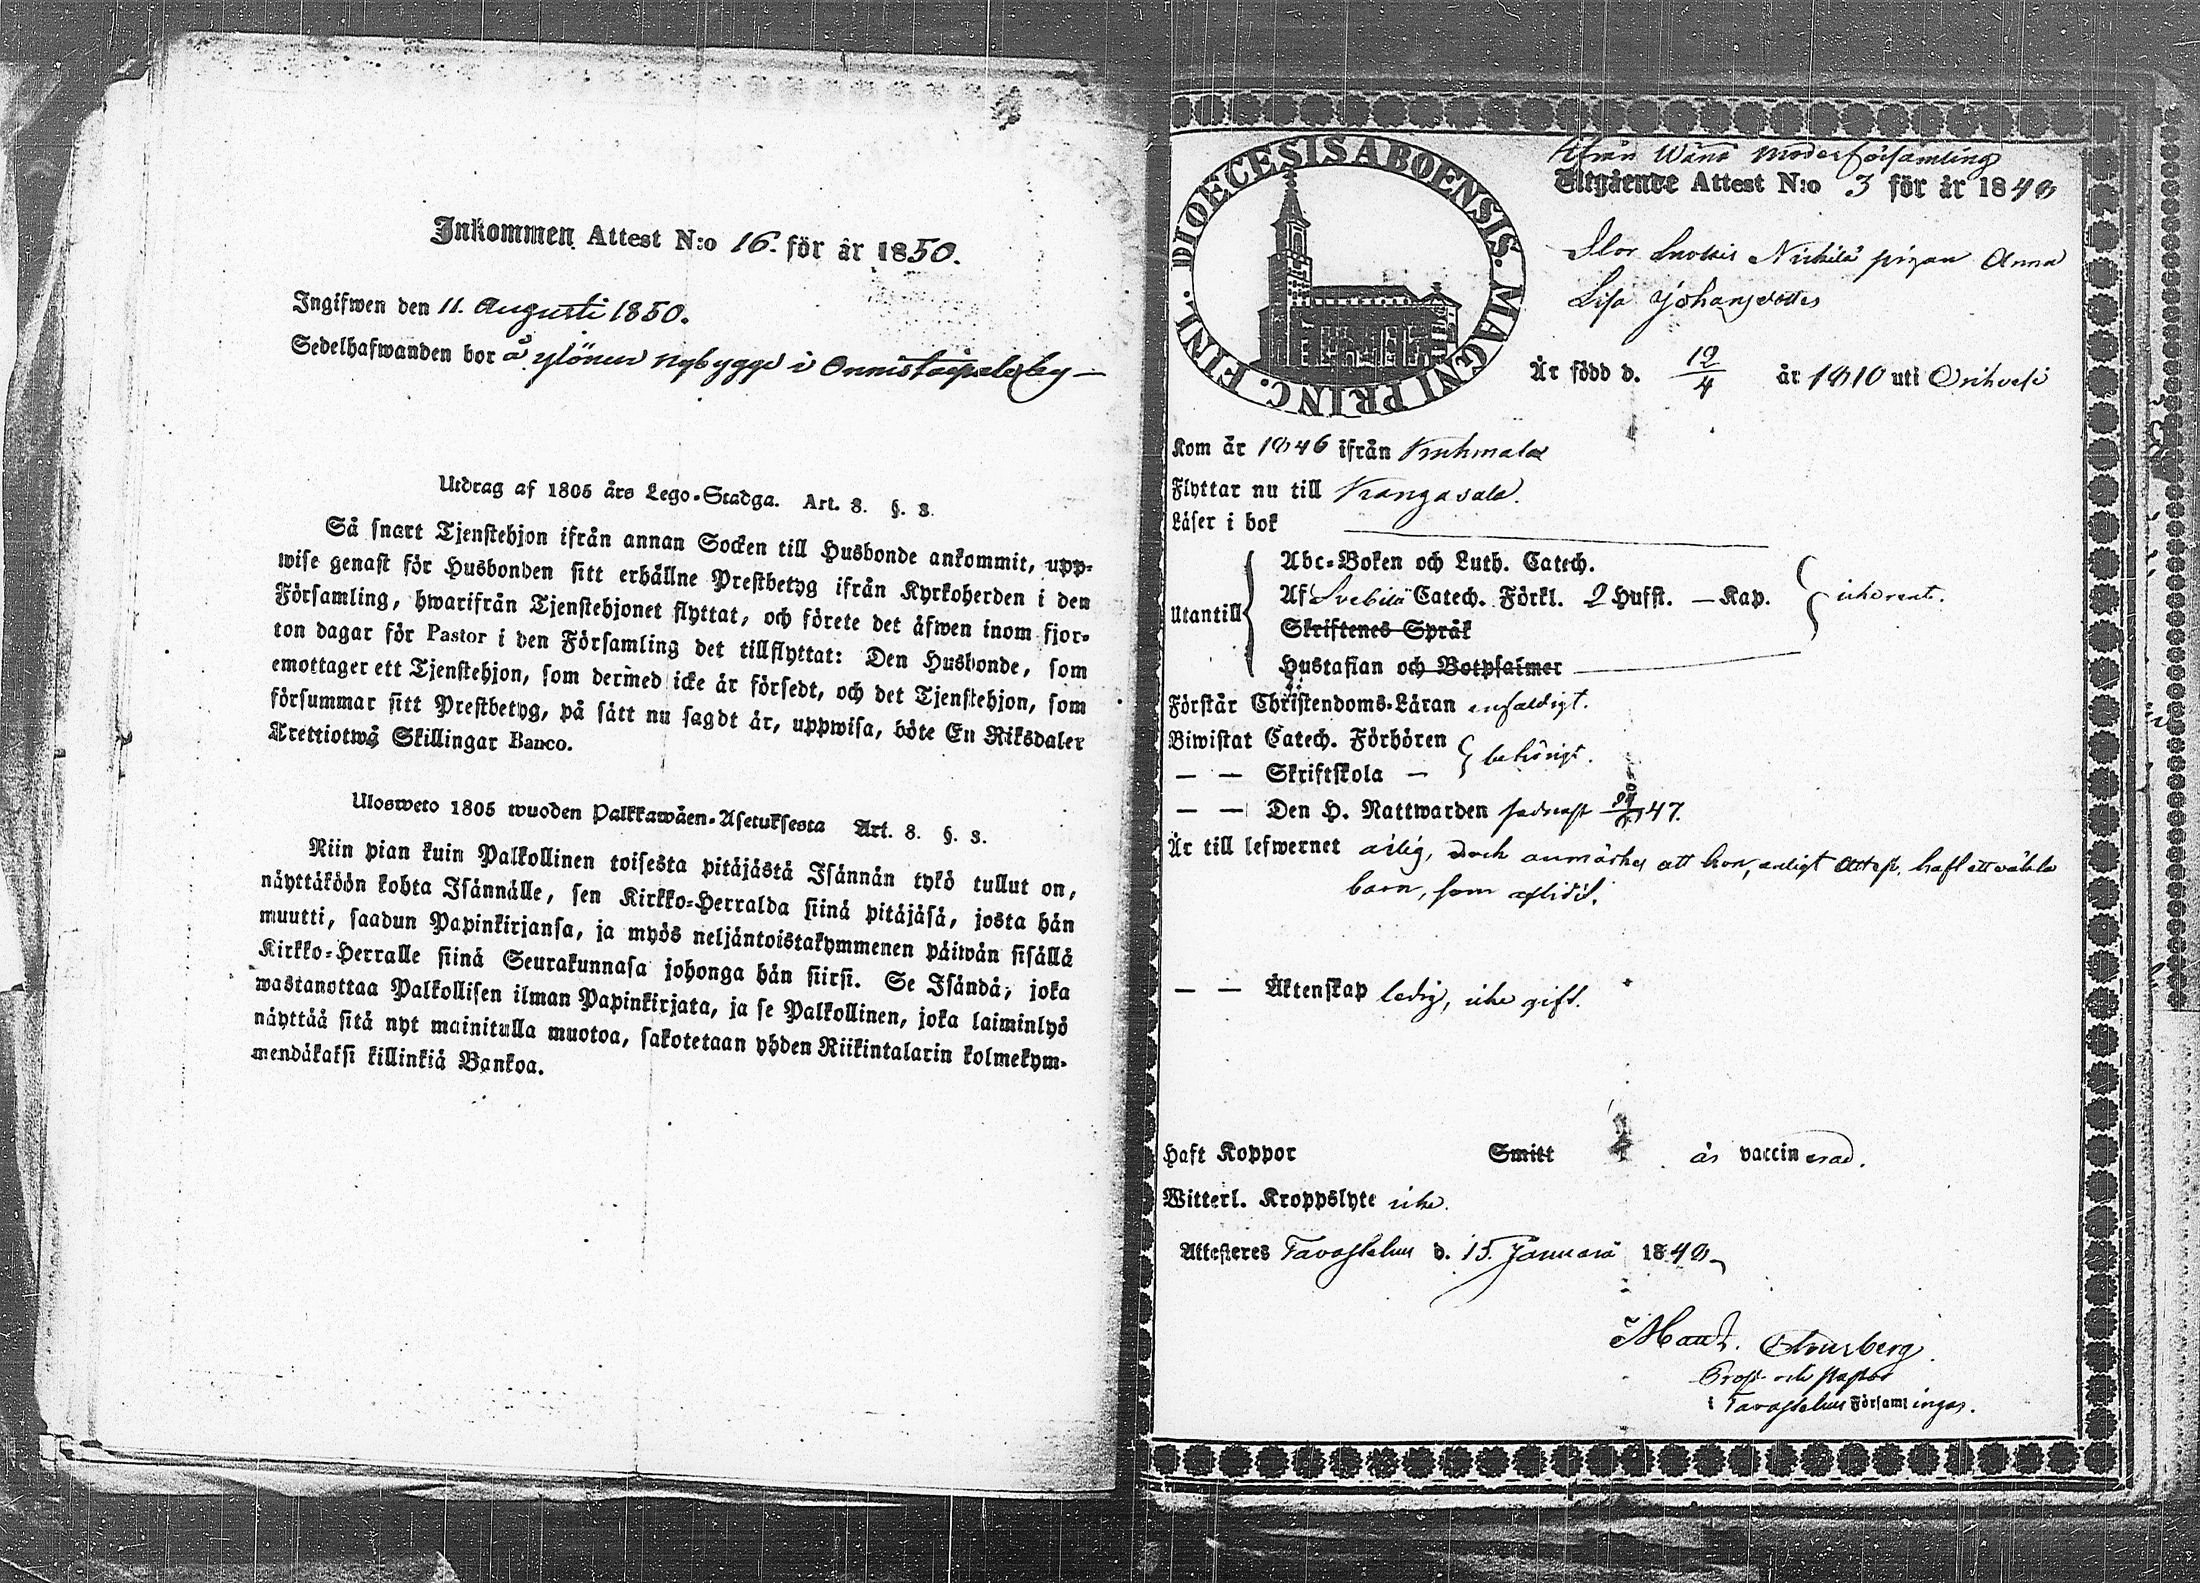 Inkommen Attest N:o 16. för år 1850.
Ingifwen den 11. Augusti 1850.
Sedelhafwanden bor å Ylönen nybygge i Onnistaipale by —
Utdrag af 1805 års Lego-Stadga. Art. 8. §. 3.
Så snart Tjenstehjon ifrån annan Socken till Husbonde ankommit, upp-
wise genast för Husbonden sitt erhållne Prestbetyg ifrån Kyrkoherden i den
Församling, hwarifrån Tjenstehjonet flyttat, och förete det äfwen inom fjor-
ton dagar för Pastor i den Församling det tillflyttat: Den Husbonde, som
emottager ett Tjenstehjon, som dermed icke är försedt, och det Tjenstehjon, som
försummar sitt Prestbetyg, på sätt nu sagdt är, uppwisa, böte En Riksdaler
Trettiotwå Skillingar Banco.
Ulosweto 1805 wuoden Palkkawäen-Asetuksesta Art. 8. §. 3.
Niin pian kuin Palkollinen toisesta pitäjästä Isännän tykö tullut on,
näyttäköön kohta Isännälle, sen Kirkko-Herralda siinä pitäjäsä, josta hän
muutti, saadun Papinkirjansa, ja myös neljäntoistakymmenen päiwän sisällä
Kirkko-Herralle siinä Seurakunnasa johonga hän siirsi. Se Isändä, joka
wastanottaa Palkollisen ilman Papinkirjata, ja se Palkollinen, joka laiminlyö
näyttää sitä nyt mainitulla muotoa, sakotetaan yhden Riikintalarin kolmekym-
mendäkaksi killinkiä Bankoa.
DIOECESIS ABOENSIS. MAGNI PRINC. FINL.
Ifrån Wånå Moderförsamling
Utgående Attest N:o 3 för år 1849
Nikkilä pigan Anna
Lisa Johansdotter
Är född d. 12/4 år 1810 uti Orihvesi
Kom år 1846 ifrån Kuhmalax
Flyttar nu till Kangasala.
Läser i bok
Utantill
Abc-Boken och Luth. Catech.
Af Svebilii Catech. Förkl. 2 Hufst. — Kap. icke rent.
Skriftenes Språk
Hustaflan och Botpsalmer
Förstår Christendoms-Läran enfaldigt.
Biwistat Catech. Förhören behörigt.
— — Skriftskola —
— — Den H. Nattwarden sednast 47.
Är till lefwernet ärlig, Dock anmärkes att hon, enligt Attest, haft ett oäkta
barn, som aflidit.
— — Äktenskap ledig, icke gift.
Haft Koppor Smitt är vaccinerad.
Witterl. Kroppslyte icke.
Attesteres Tavastehus d. 15. Januarii 1849
Prost och Pastor
i Tavastehus Församlingar.